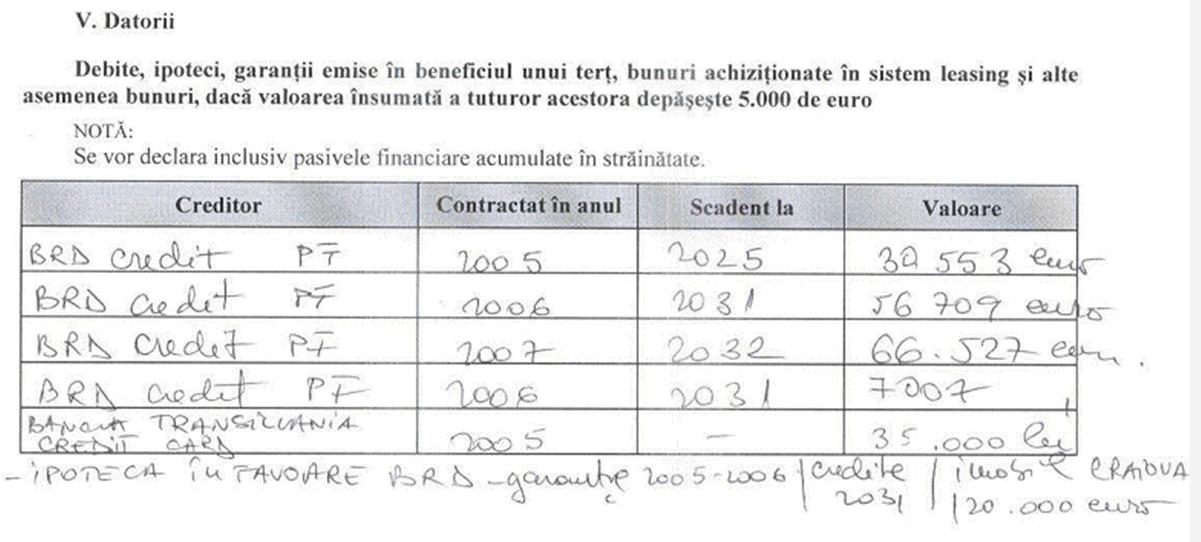 V. Datorii
Debite, ipoteci, garanții emise în beneficiul unui terț, bunuri achiziționate în sistem leasing și alte
asemenea bunuri, dacă valoarea însumată a tuturor acestora depășește 5.000 de euro
NOTĂ:
Se vor declara inclusiv pasivele financiare acumulate în străinătate.
Creditor Contractat în anul Scadent la Valoare
BRD credit PF 2005 2025 553 euro
BRD credit PF 2006 2031 56 709 euro
BRD credit PF 2007 2032 66.527 euro
BRD credit PF 2006 2031 7007
BANCA TRANSILVANIA
CREDIT CARD 2005 – 35.000 lei
- IPOTECA ÎN FAVOARE BRD - garanție 2005-2006 / credite / imobil CRAIOVA
2031 / 120.000 euro